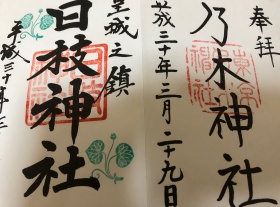 奉拝
乃木神社
平成三十年三月二十九日
皇城之鎮
日枝神社
平成三十年三